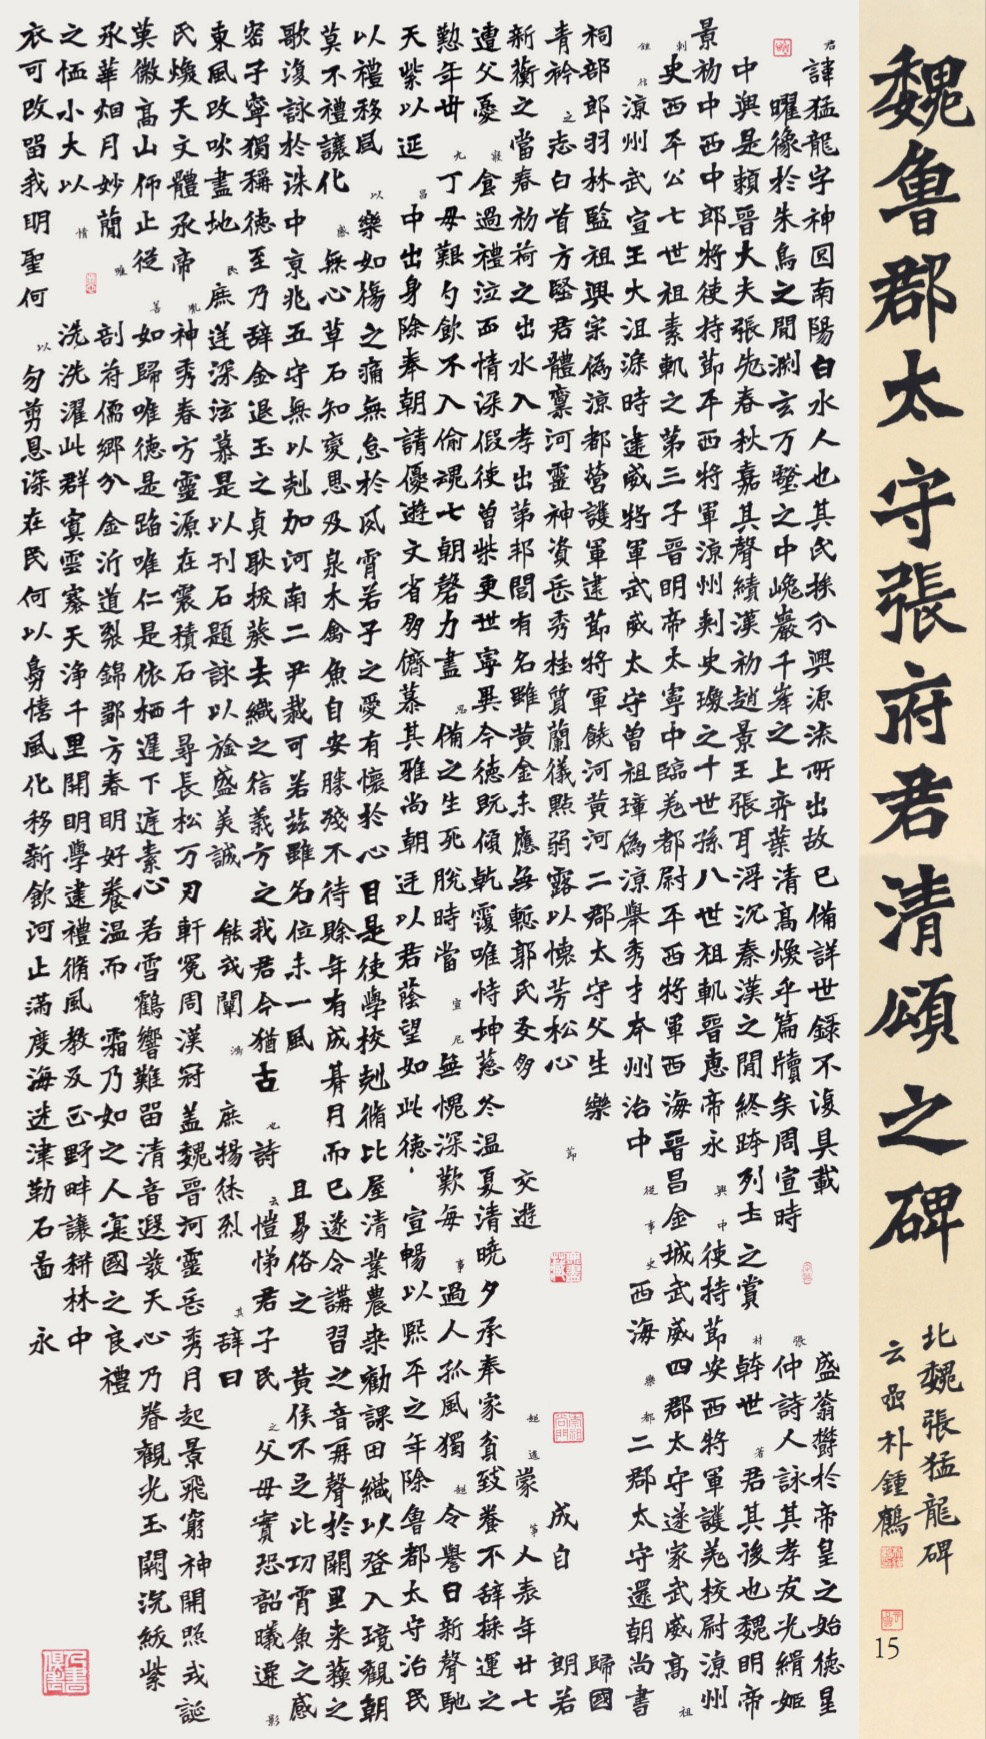 魏魯郡太守張府君清頌之碑
北魏張猛龍碑
云嵒朴鍾鶴
15
君諱猛龍字神囧南陽白水人也其氏族分興源流所出故已備詳世錄不復具載盛蓊欝於帝皇之始德星
曜像於朱鳥之間淵玄万壑之中巉巖千峯之上弈葉清高煥乎篇牘矣周宣時張仲詩人詠其孝友光緝姬
中興是賴晉大夫張老春秋嘉其聲績漢初趙景王張耳浮沉秦漢之間終跨列士之賞材幹世著君其後也魏明帝
景初中西中郎將使持節平西將軍涼州刾史瓊之十世孫八世祖軌晉惠帝永興中使持節安西將軍護羌校尉涼州
刺史西平公七世祖素軌之第三子晉明帝太寧中臨羌都尉平西將軍西海晉昌金城武威四郡太守遂家武威高祖
鍾信涼州武宣王大沮渠時建威將軍武威太守曾祖璋偽涼舉秀才本州治中從事史西海樂都二郡太守還朝尚書
祠部郎羽林監祖興宗偽涼都營護軍建節將軍饒河黃河二郡太守父生樂歸國
青衿之志白首方堅君體稟河靈神資岳秀桂質蘭儀點弱露以懷芳松心節成自朗若
新蘅之當春初荷之出水入孝出第邦閭有名雖黃金未應無慙郭氏友朋交遊超遠蒙筆人表年廿七
遭父憂寢食過禮泣血情深假使曾柴更世寧異今德既傾乾覆唯恃坤慈冬温夏清曉夕承奉家貧致養不辞採運之
懃年卅九丁母艱勺飲不入偷魂七朝磬力盡思備之生死脫時當宣尼無愧深歎每事過人孤風獨超令譽日新聲馳
天紫以延昌中出身除奉朝請優遊文省朋儕慕其雅尚朝廷以君蔭望如此德宣暢以熙平之年除魯郡太守治民
以禮移風以樂如傷之痛無怠於夙宵若子之愛有懷於心目是使學校剋脩比屋清業農桑勸課田織以登入境觀朝
莫不禮讓化感無心草石知變恩及泉木禽魚自安勝殘不待賒年有成朞月而已遂令講習之音再聲於闕里来蘇之
歌復詠於洙中京兆五守無以剋加河南二尹裁可若茲雖名位未一風且易俗之黃侯不足比功霄魚之感
密子寧獨稱德至乃辞金退玉之貞耿拔葵去織之信義方之我君今猶古也詩云愷悌君子民之父母實恐韶曦遷影
東風改吹盡地民庶逆深泫慕是以刊石題詠以旌盛美誠能式闡鴻庶揚烋烈其辞曰
民煥天文體承帝胤神秀春方靈源在震積石千尋長松万刃軒冕周漢冠盖魏晉河靈岳秀月起景飛窮神開照式誕
英徽高山仰止從善如歸唯德是蹈唯仁是依栖遲下庭素心若雪鶴響難留清音遐發天心乃眷觀光玉闕浣紱紫
禾華烟月妙簡唯剖符儒鄉分金沂道裂錦鄒方春明好養温而霜乃如之人寔國之良禮
之恤小大以情洗洗濯此群冥雲褰天淨千里開明學建禮脩風教反正野畔讓耕林中
衣可改留我明聖何以勿剪恩深在民何以鳧憘風化移新飲河止滿度海迷津勒石啚永